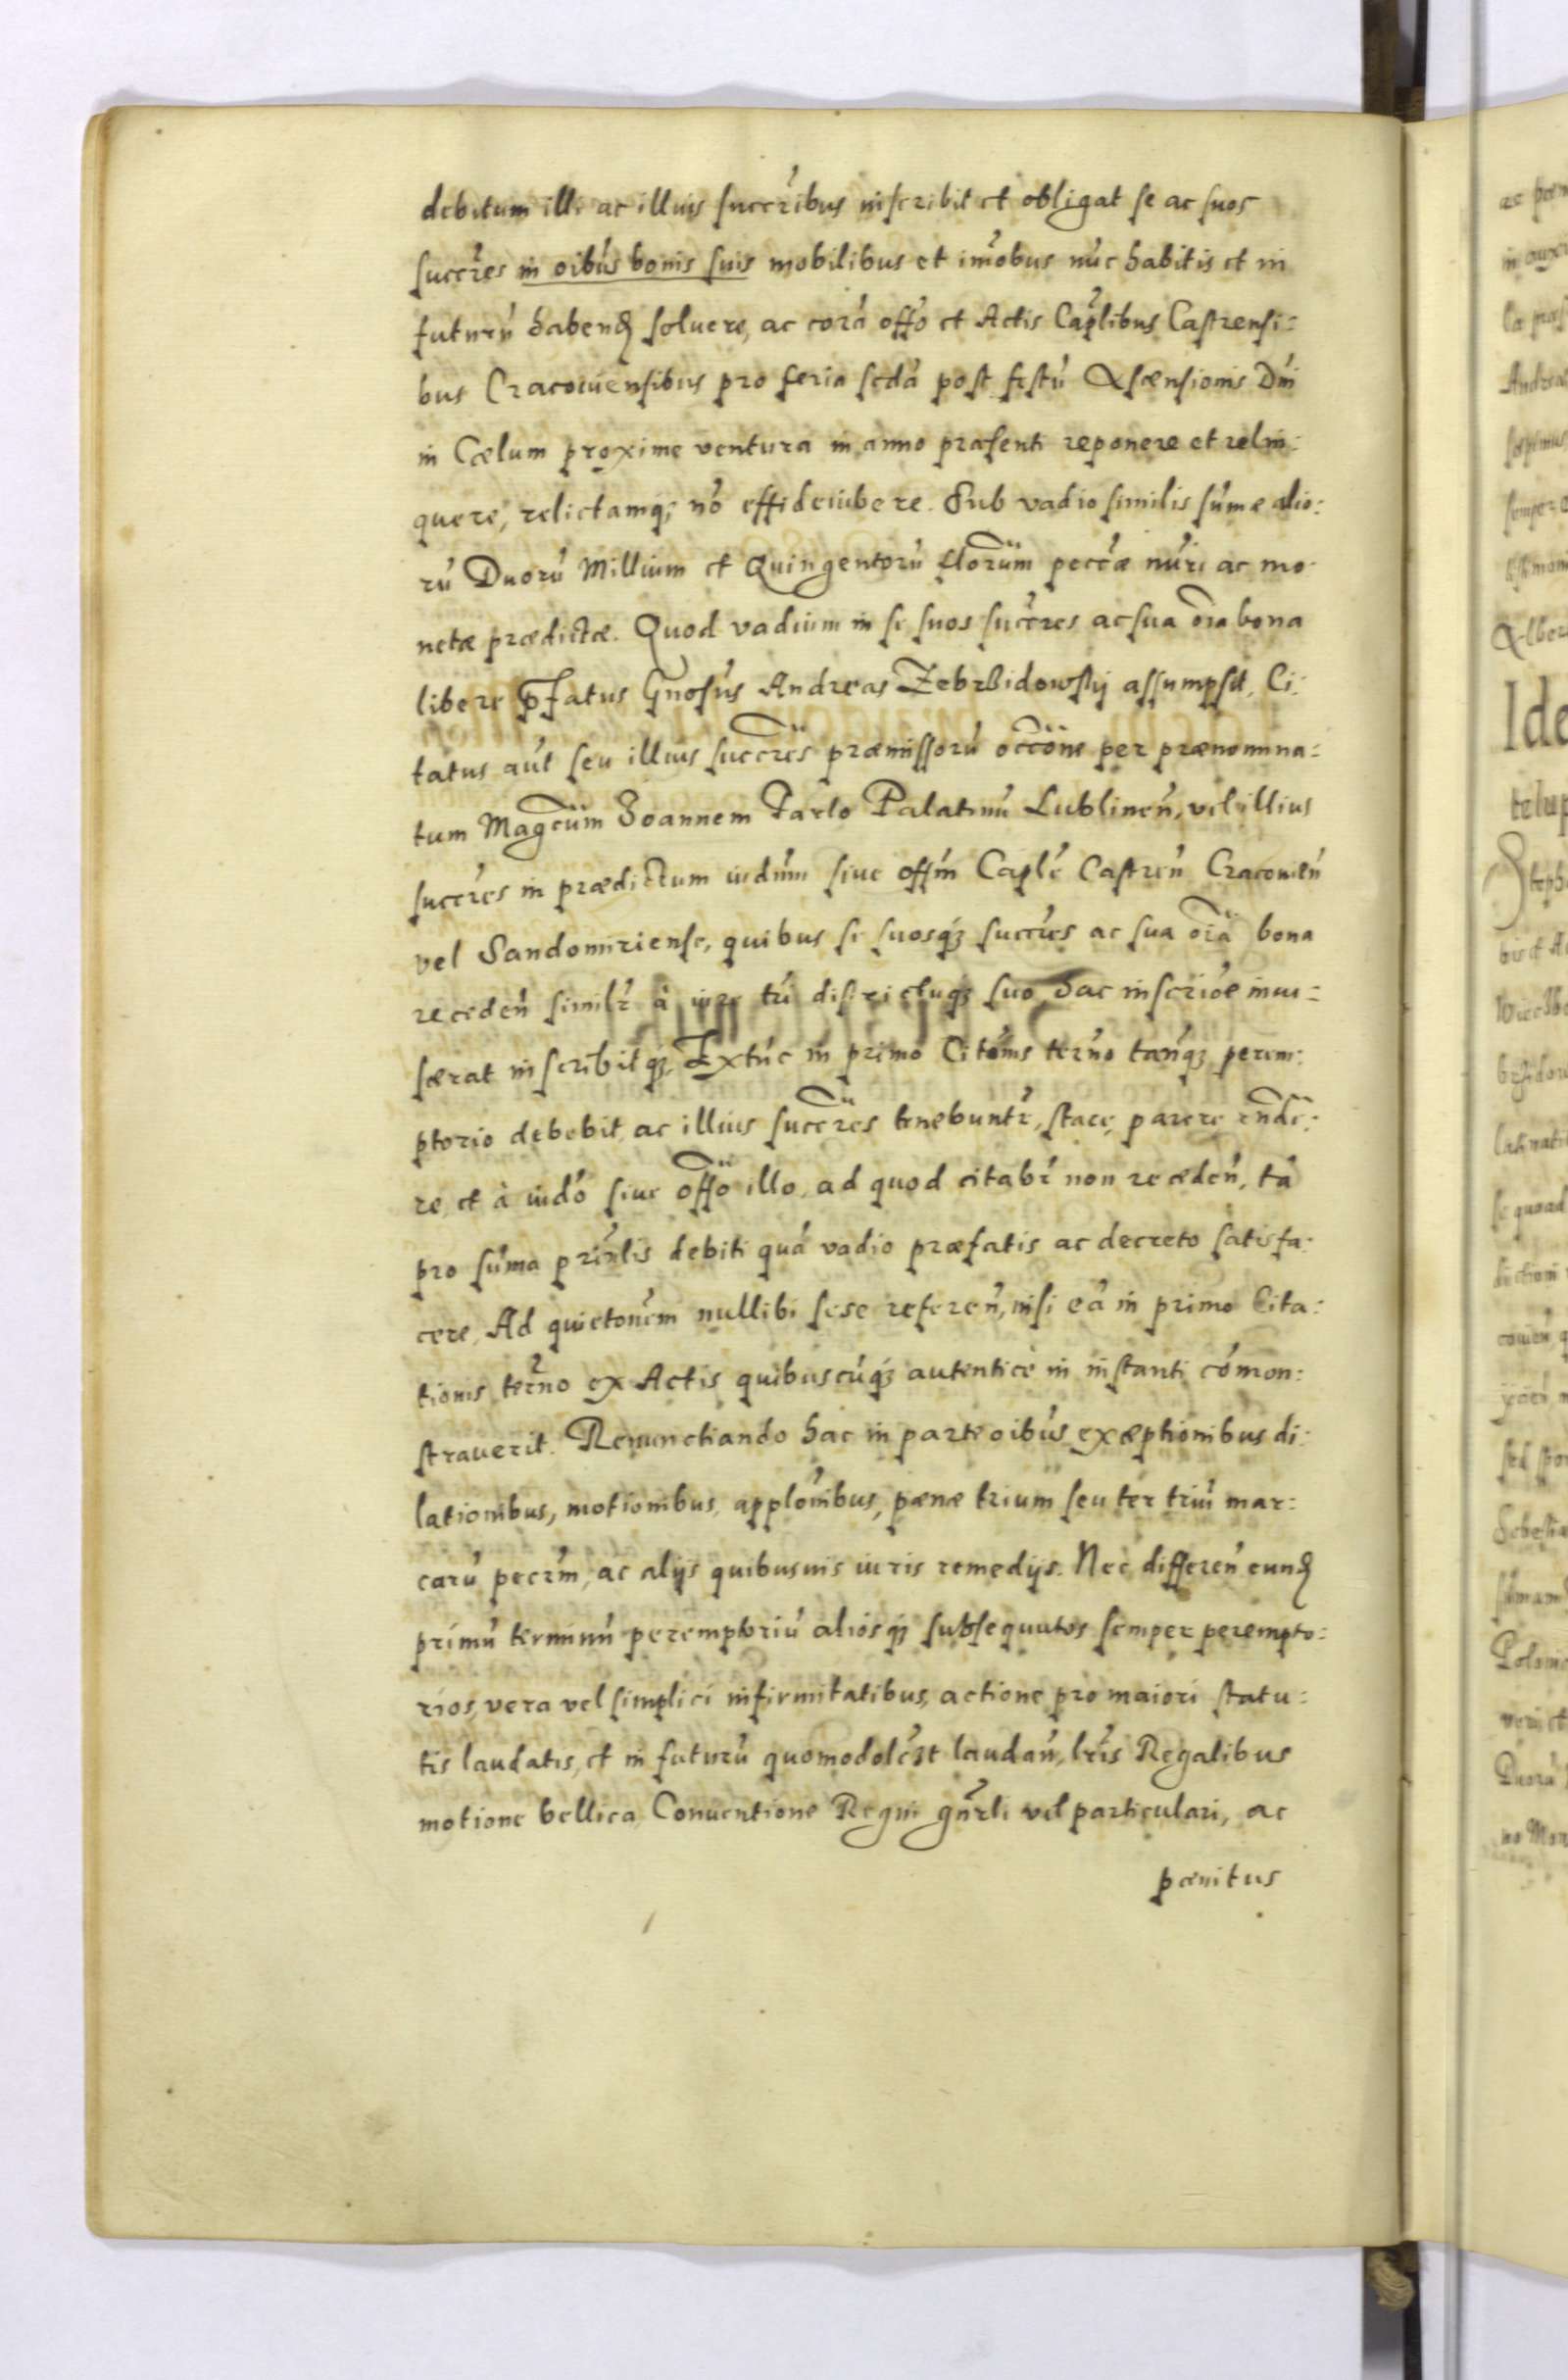 debitum illi ac illius succr̃ibus inscribit et obligat se ac suos
succr̃es in oib́us bonis suis mobilibus et im̃obus núc habitis et in
futurú habenđ soluere, ac corá offó et Actis Caplĩbus Castrensi:
bus Cracouiensibus pro feria scdá post festú Ascensionis Dńi
in Cœlum proxime ventura in anno præsenti reponere et relin:
quere, relictamq; nó effideiubere. Sub vadio similis súmæ alio:
rú Duorú Millium et Quingentorú flor̃um peccæ nur̃i ac mo
netæ prædictæ. Quod vadium in se suos succr̃es ac sua om̃ia bona
libere p̃fatus Gńosus Andreas Zebrzidowskij assumpsit, Ci:
tatus aút seu illius succr̃es præmissorú occ̃one per prænomina:
tum Magc̃um Joannem Tarlo Palatinú Lublineń, vel illius
succr̃es in prædictum iudiúm siue offím Caplé Castreń Cracouień
vel Sandomiriense, quibus se suosq; succr̃es ac sua oĩa bona
recedeń similr̃ à iure trí districtuq; suo, hac inscrióe inui:
scerat inscribitq; Extúc in primo Citóms ter̃no tanq́; perem:
ptorio debebit, ac illius succr̃es tenebuntr̃, stare, parere rñde:
re, et à iudó siue offó illo, ad quod citabr̃ non recedeń, tá
pro súma prinr̃lis debiti quá vadio præfatis ac decreto satisfa:
cere, Ad quietońem nullibi sese refereń, nisi eá in primo Cita:
tionis ter̃no ex Actis quibuscúq; autentice in instanti cómon:
strauerit. Renunctiando hac in parte oib́us exceptionibus di:
lationibus, motionibus, applońibus, pænæ trium seu ter triú mar:
carú pecr̃m, ac alijs quibusuis iuris remedijs. Nec differeń eunđ
primú terminú peremptoriú aliosq́; subsequutos semper perempto:
rios, vera vel simplici infirmitatibus, actione pro maiori statu:
tis laudatis, et in futurú quomodolt́ laudań, lr̃is Regalibus
motione bellica Conuentione Regni gñrli vel particulari, ac
pænitus